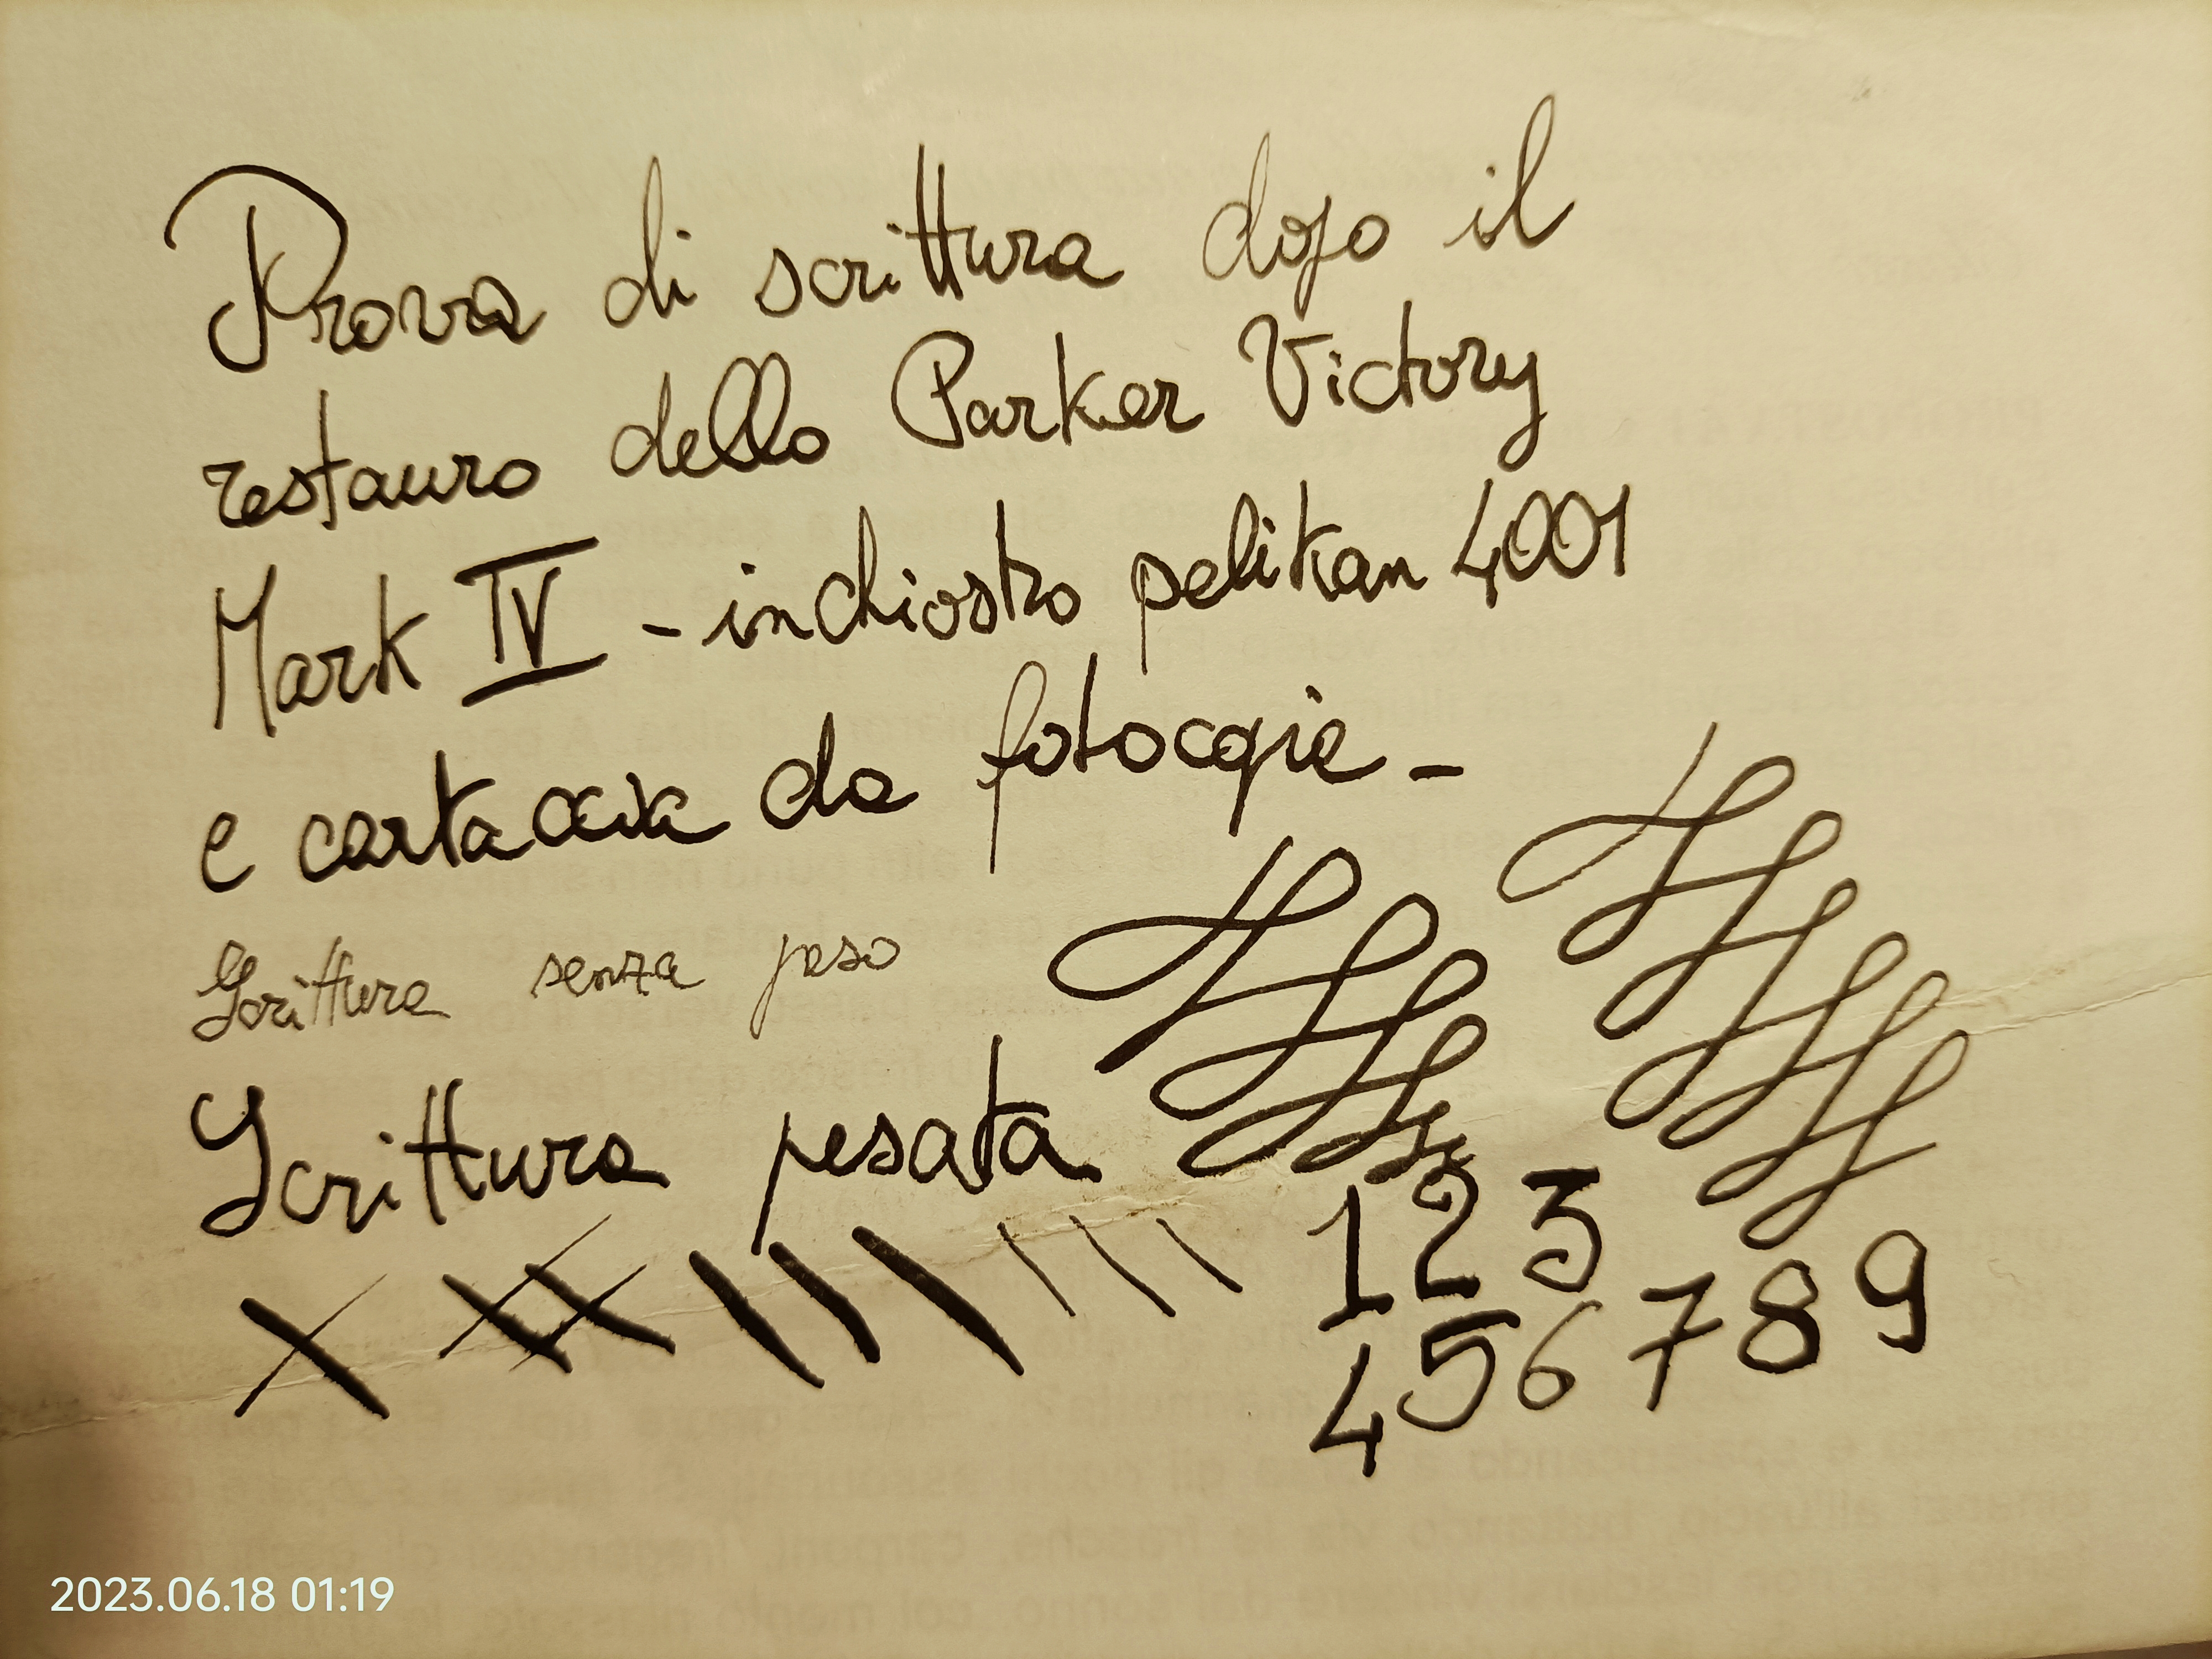 Prova di scrittura dopo il
restauro dello Parker Victory
Mark IV - inchiostro pelikan 4001
e cartaccia da fotocopie -
Scrittura senza peso
Scrittura pesata
1 2 3
4 5 6 7 8 9
2023.06.18 01:19